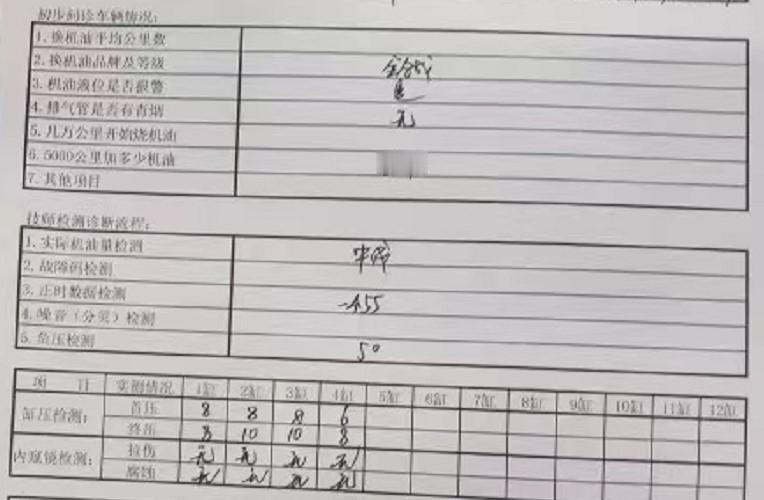 初步问诊车辆情况:
1. 换机油平均公里数
2. 换机油品牌及等级 全合成
3. 机油液位是否报警
4. 排气管是否有青烟 无
5. 几万公里开始烧机油
6. 5000公里加多少机油
7. 其他项目
技师检测诊断流程:
1. 实际机油量检测
2. 故障码检测
3. 正时数据检测 -455
4. 噪音(分贝)检测
5. 负压检测 50
项 目 实测情况 1缸 2缸 3缸 4缸 5缸 6缸 7缸 8缸 9缸 10缸 11缸 12缸
缸压检测: 首压 8 8 8 6
终压 8 10 10 8
内窥镜检测: 拉伤 无 无 无 无
腐蚀 无 无 无 无